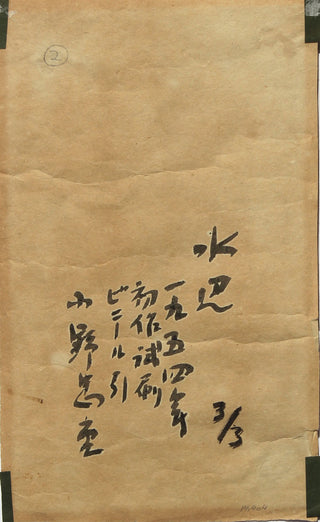 ②
水辺
一九五四年
3/3
初作試刷
ビニール引
小野忠重